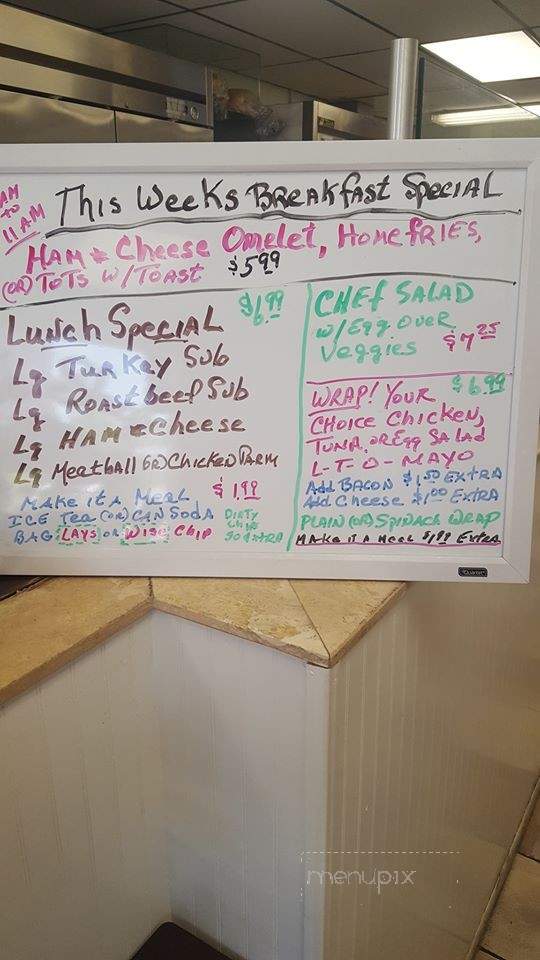 AM
TO
11 AM
This Weeks BREAKfast SpeciAL
HAM & Cheese Omelet, HOMEfRIES,
(OR) ToTs W/TOAST $5.99
Lunch SpeciAL $6.99
Lg TuRKey Sub
Lg ROAST beef Sub
Lg HAM & Cheese
Lg Meatball (OR) Chicken PARM
MAKE iT A MeAL $1.99
ICE Tea (OR) CAN SodA
BAG LAYS OR Wise Chip
DIRTY
CHIP
50 EXTRA
CHEf SALAD
w/Egg over
Veggies $7.25
WRAP! YOUR $6.99
CHoice Chicken,
TUNA, OR Egg SALAd
L-T-O-MAYO
Add BACON $1.50 EXTRA
Add Cheese $1.00 EXTRA
PLAIN (OR) SPINACH WRAP
MAKe IT A MeAL $1.99 EXTRA
Quartet
menupix